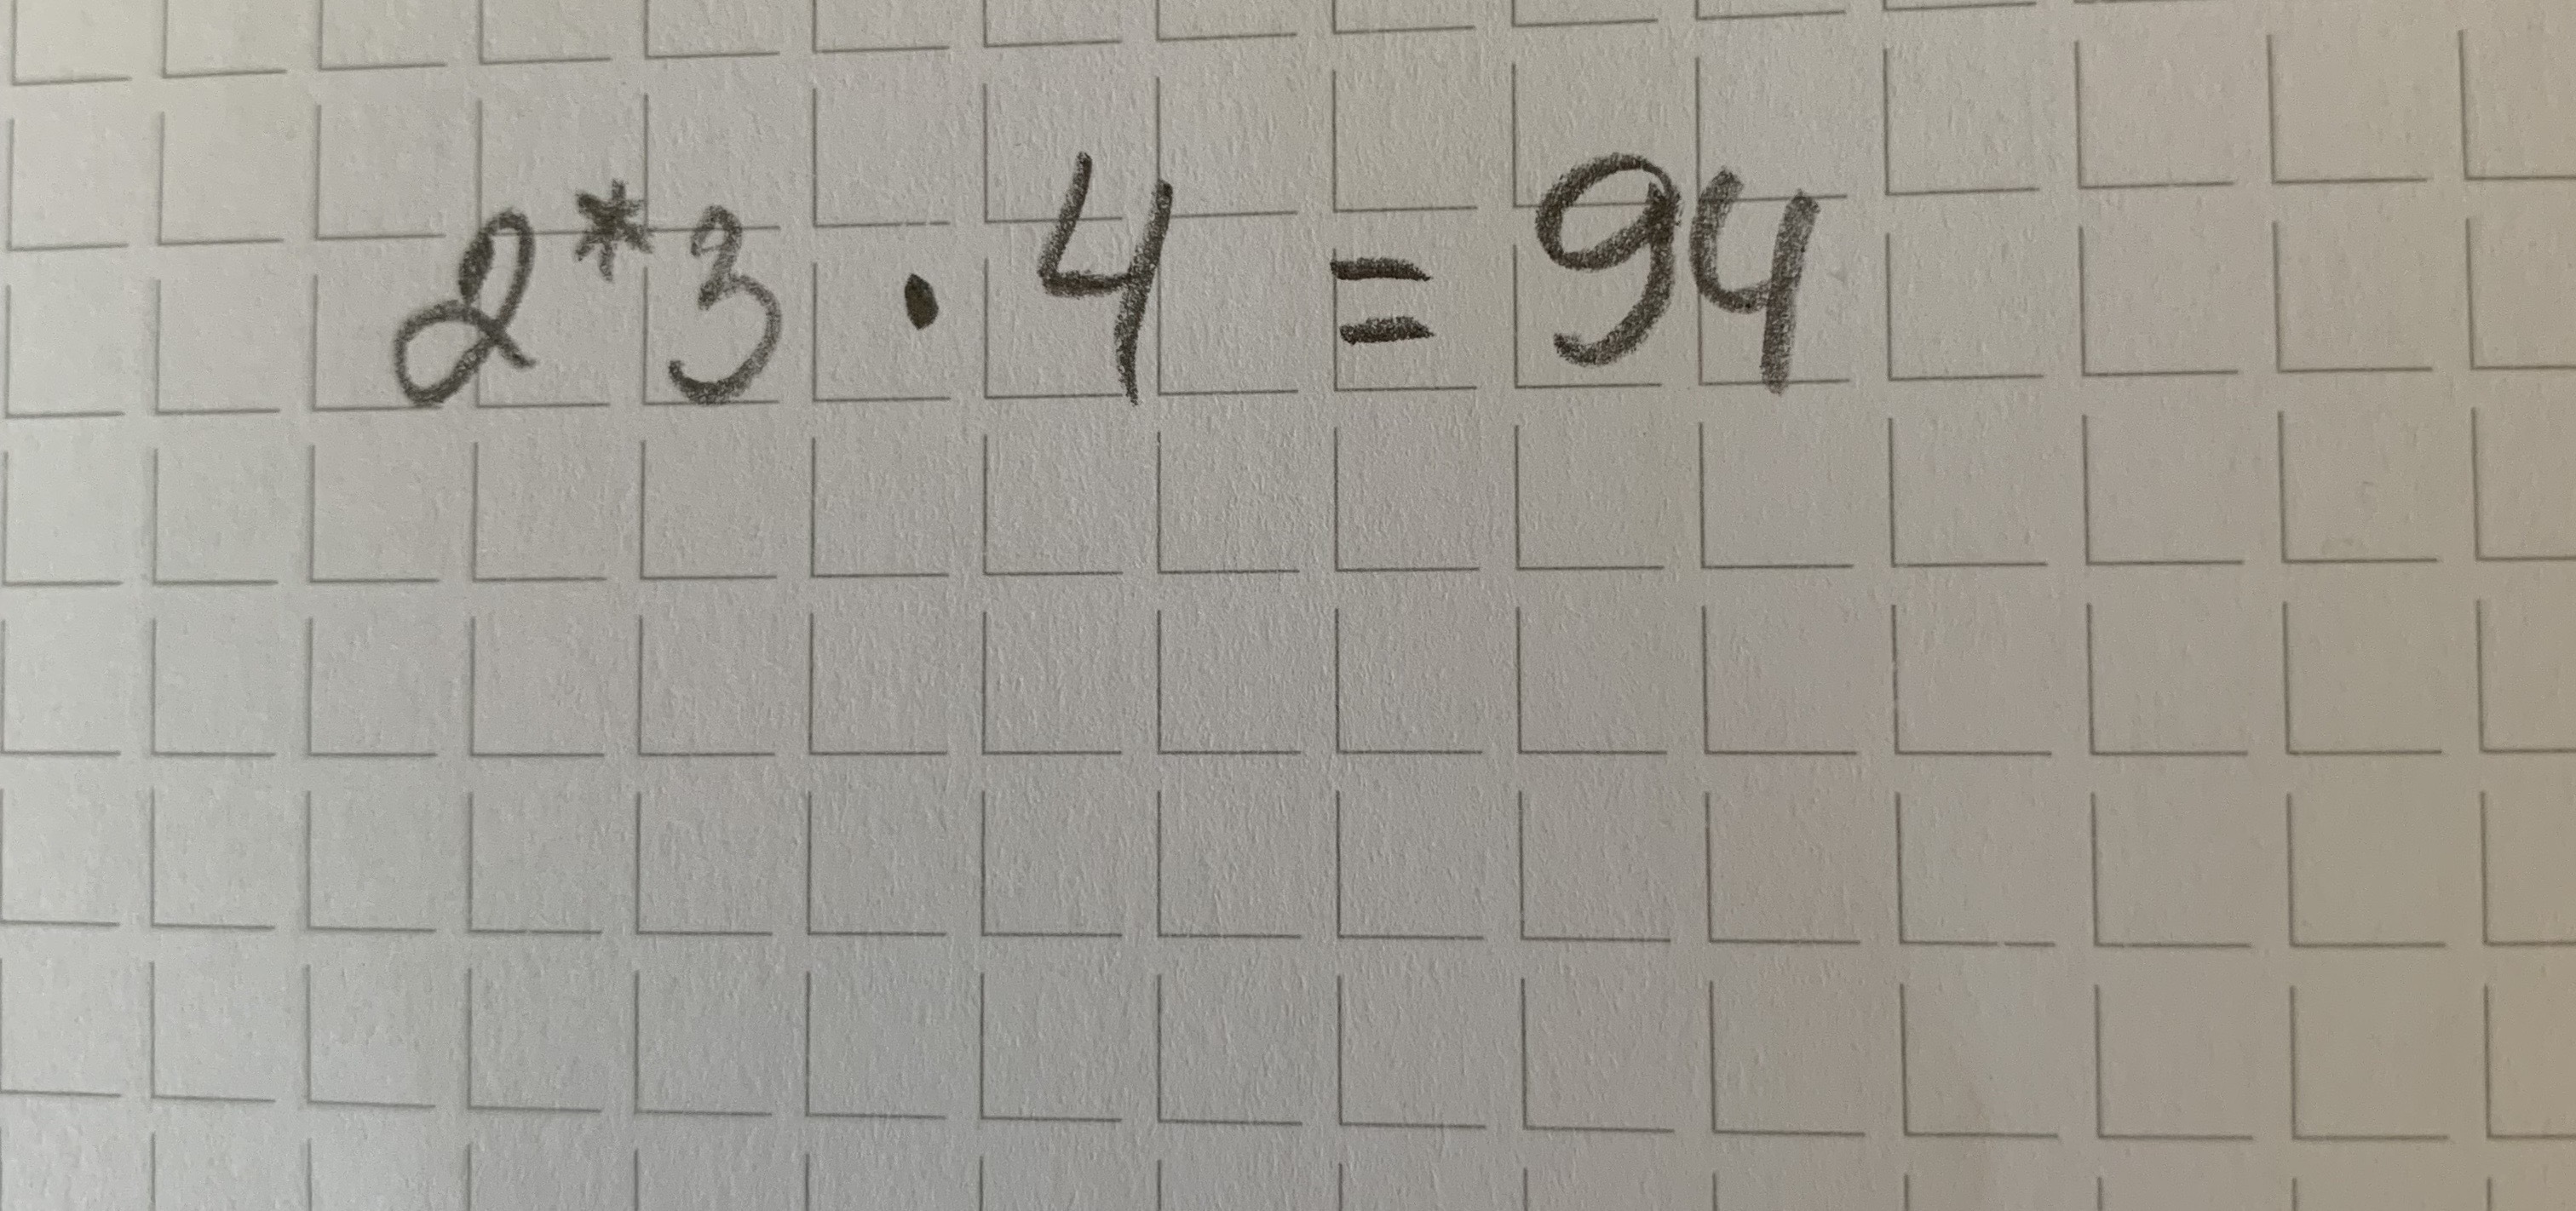 2*3 · 4 = 94